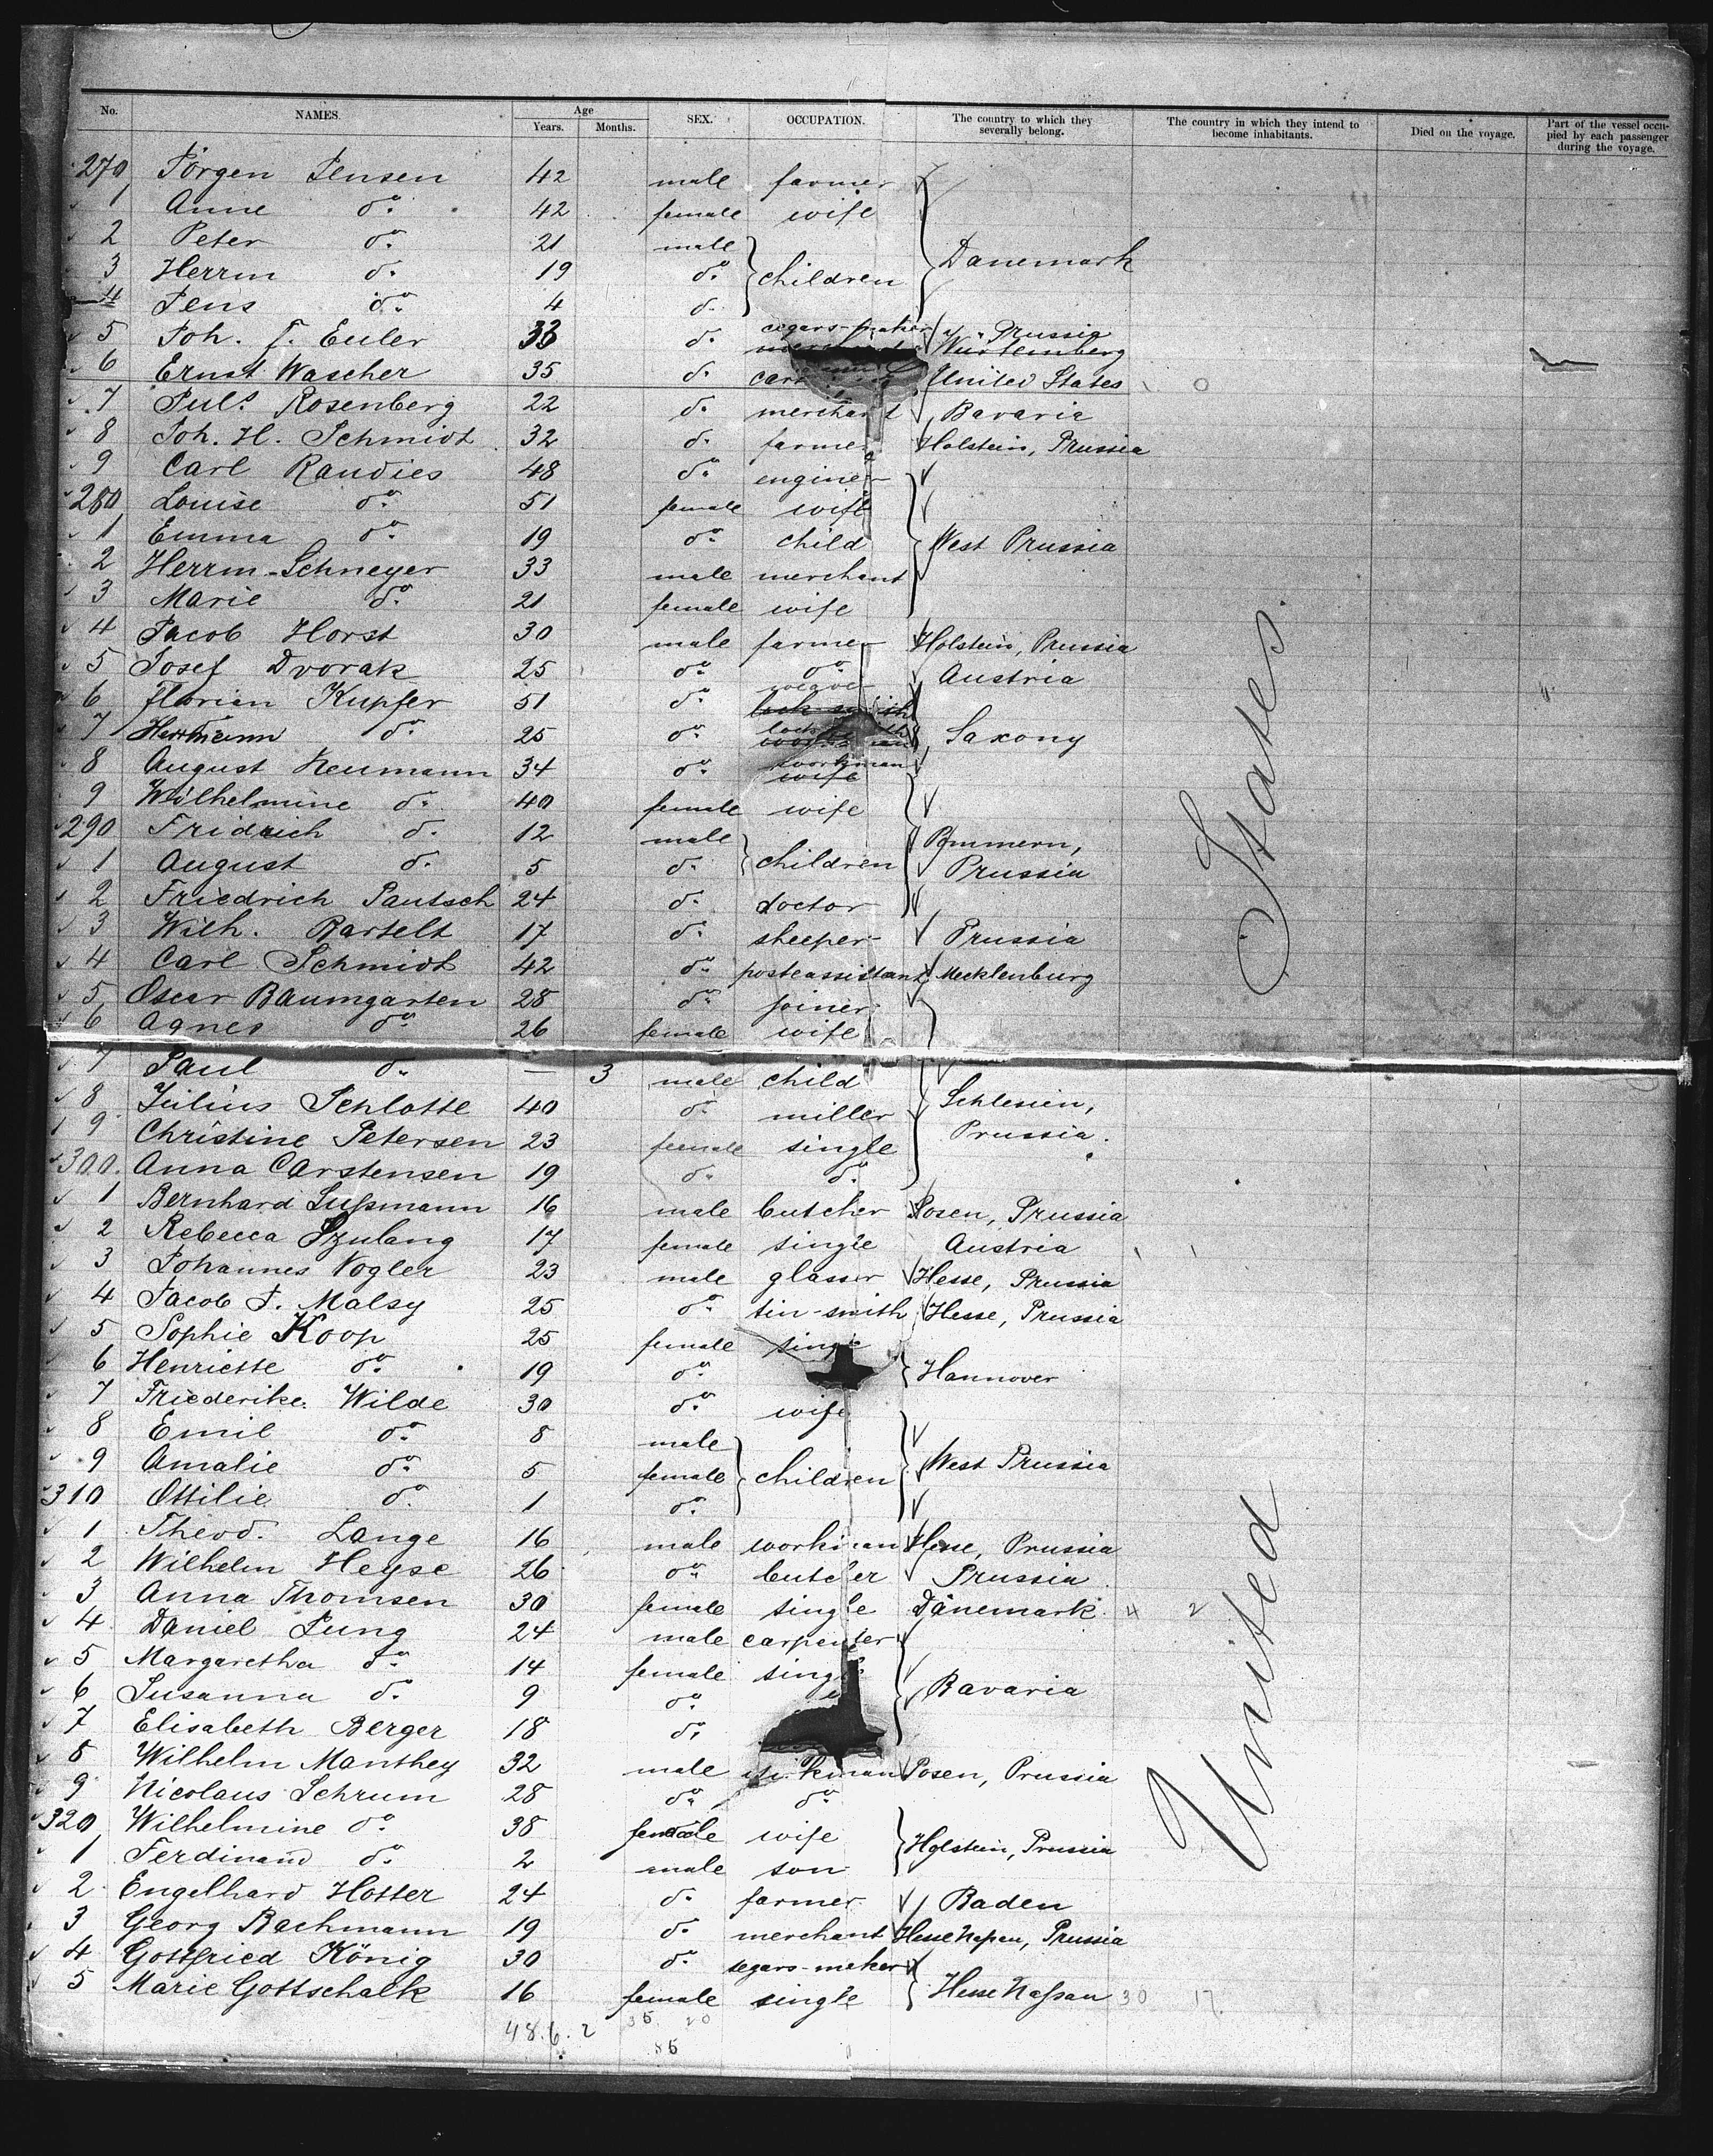 No. NAMES. Age Years. Months. SEX. OCCUPATION. The country to which they severally belong. The country in which they intend to become inhabitants. Died on the voyage. Part of the vessel occupied by each passenger during the voyage.
270 Jörgen Jensen 42 male farmer
1 Anne do. 42 female wife
2 Peter do. 21 male
3 Herrm do. 19 do. children Danemark
4 Jens do. 4 do.
5 Joh. F. Euler 33 do. cegars-maker Prussia Würtemberg
6 Ernst Wascher 35 do. United States
7 Juls. Rosenberg 22 do. merchant Bavaria
8 Joh. H. Schmidt 32 do. farmer Holstein, Prussia
9 Carl Randies 48 do. engineer
280 Louise do. 51 female wife
1 Emma do. 19 do. child West Prussia
2 Herrm. Schneyer 33 male merchant
3 Marie do. 21 female wife
4 Jacob Horst 30 male farmer Holstein, Prussia
5 Josef Dvorak 25 do. do. Austria
6 Florian Kupfer 51 do. weaver lock-smith
7 Herrmann do. 25 do. locksmith workman Saxony
8 August Neumann 34 do. workman wife
9 Wilhelmine do. 40 female wife
290 Fridrich do. 12 male Pommern,
1 August do. 5 do. children Prussia
2 Friedrich Pautsch 24 do. doctor
3 Wilh. Bartelt 17 do. sheeper Prussia
4 Carl Schmidt 42 do. posteassistant Mecklenburg
5 Oscar Baumgarten 28 do. joiner
6 Agnes do. 26 female wife
7 Paul do. — 3 male child
8 Julius Schlotte 40 do. miller Schlesien,
9 Christine Petersen 23 female single Prussia.
300. Anna Carstensen 19 do. do.
1 Bernhard Sußmann 16 male butcher Posen, Prussia
2 Rebecca Szulang 17 female single Austria
3 Johannes Vogler 23 male glasser Hesse, Prussia
4 Jacob F. Malsy 25 do. tin-smith Hesse, Prussia
5 Sophie Koop 25 female single
6 Henriette do. 19 do. Hannover
7 Friederike Wilde 30 do. wife
8 Emil do. 8 male
9 Amalie do. 5 female children West Prussia
310 Ottilie do. 1 do.
1 Theod. Lange 16 male workman Hesse, Prussia
2 Wilhelm Heyse 26 do. butcher Prussia
3 Anna Thomsen 30 female single Dänemark 4 2
4 Daniel Jung 24 male carpenter
5 Margaretha do. 14 female single
6 Susanna do. 9 do. Bavaria
7 Elisabeth Berger 18 do.
8 Wilhelm Manthey 32 male workman Posen, Prussia
9 Nicolaus Schrum 28 do. do.
320 Wilhelmine do. 38 female wife Holstein, Prussia
1 Ferdinand do. 2 male son
2 Engelhard Hotter 24 do. farmer Baden
3 Georg Bachmann 19 do. merchant Hesse Naßau, Prussia
4 Gottfried König 30 do. segars-meker
5 Marie Gottschalk 16 female single Hesse Naßau 30 17.
48.6.2 35 20
86
United States.